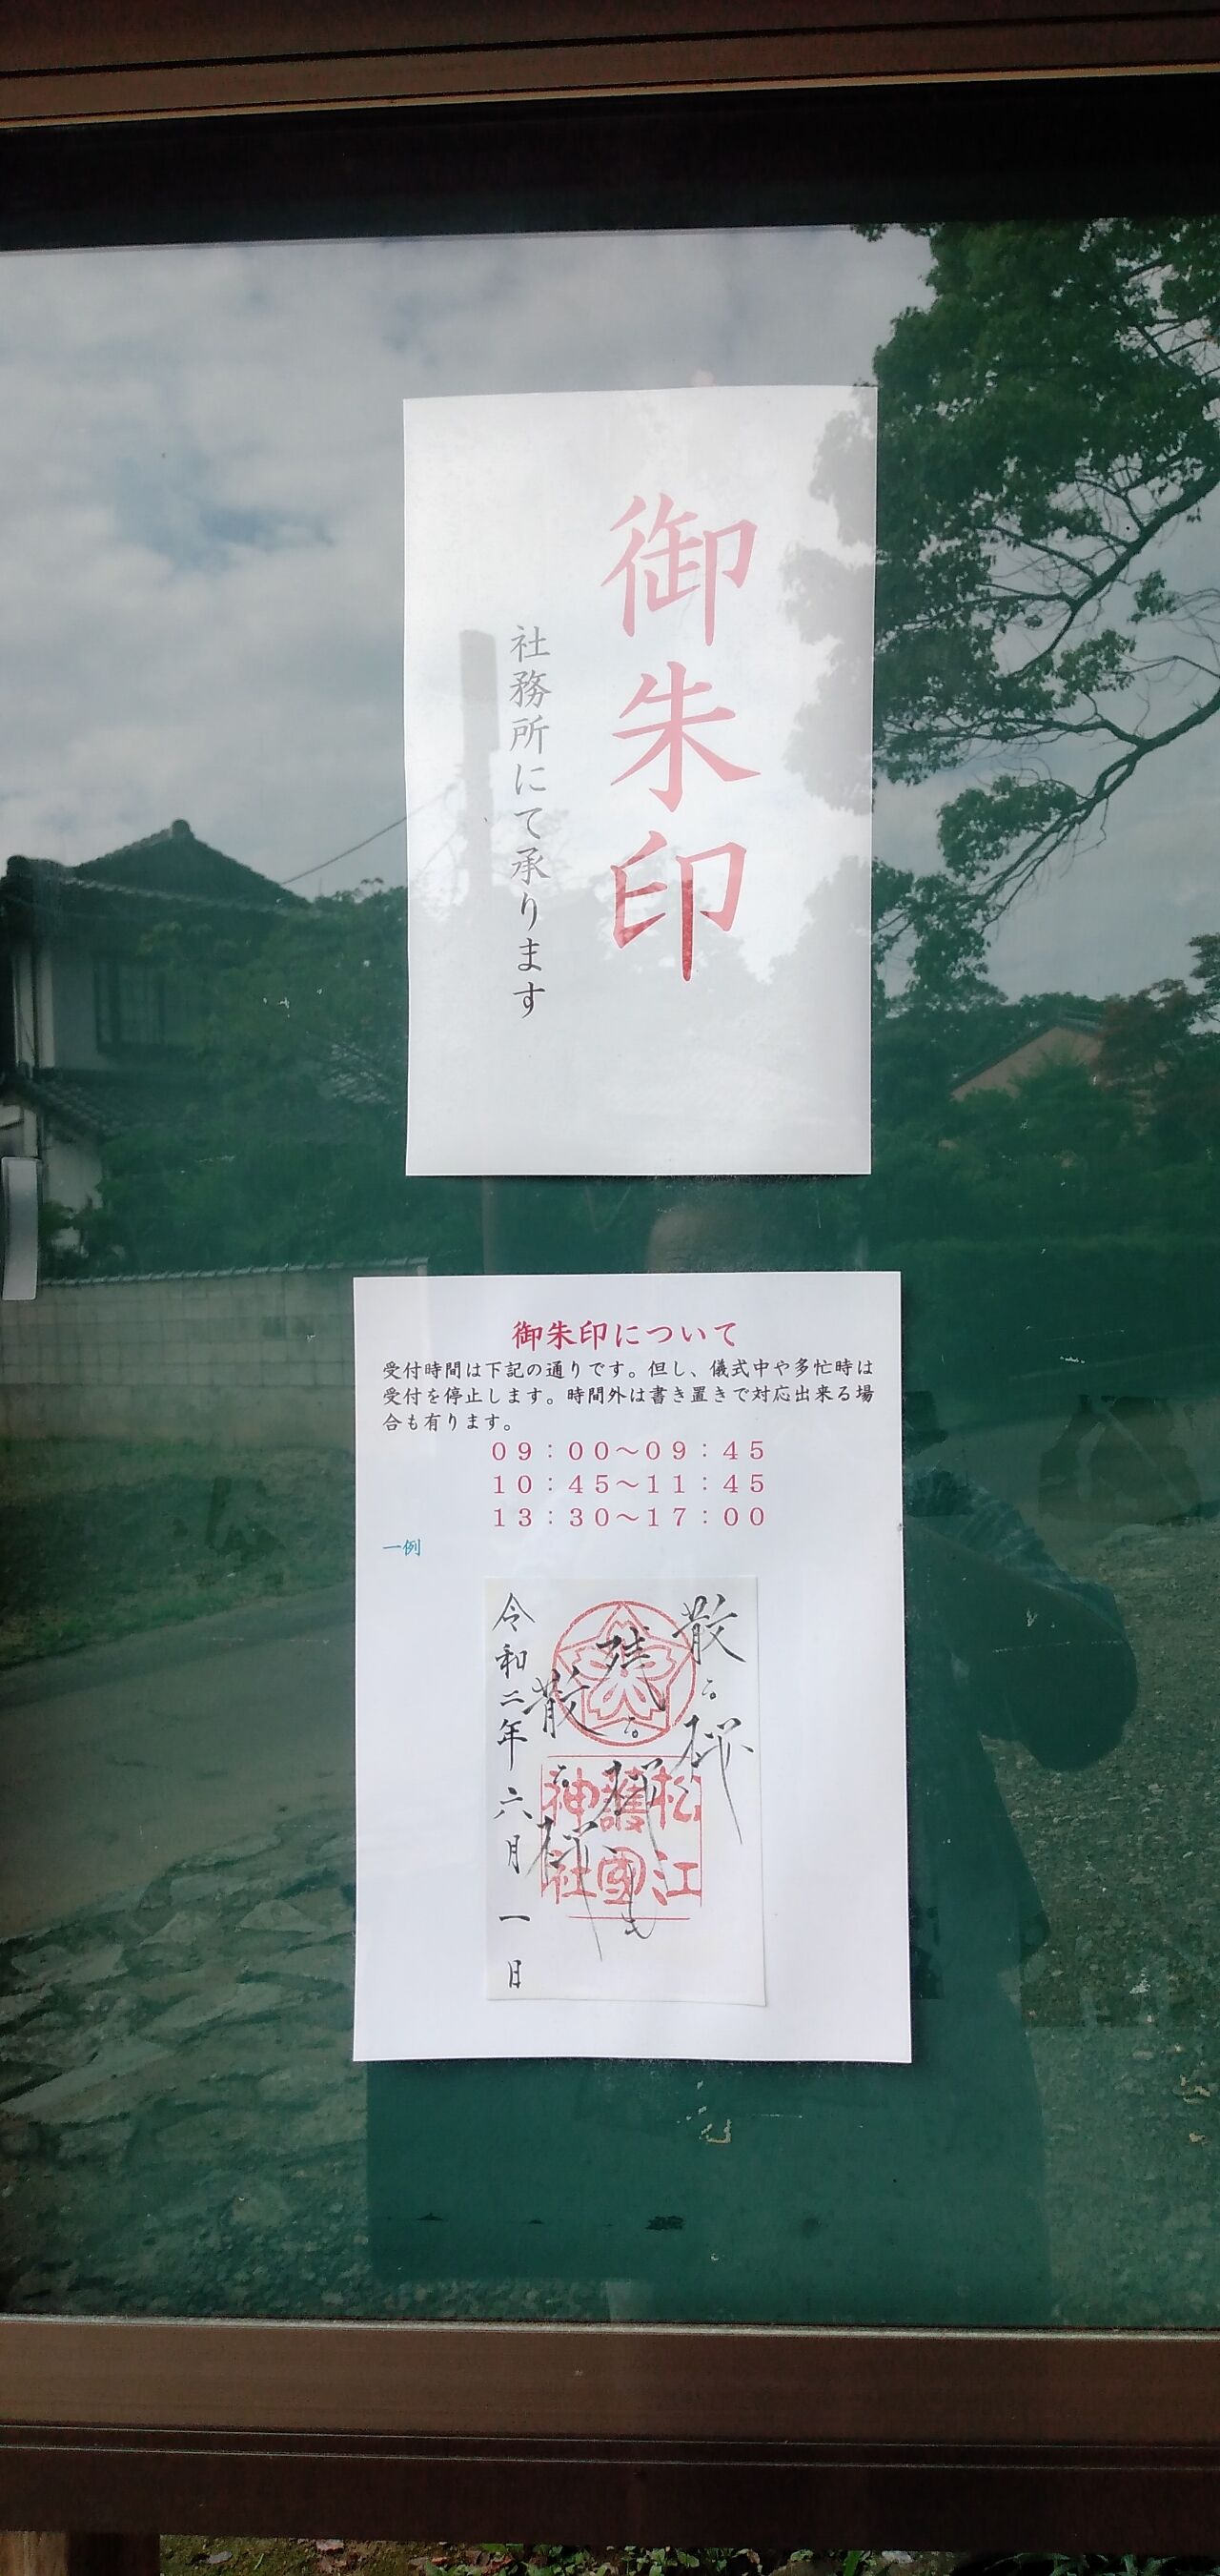 御朱印
社務所にて承ります
御朱印について
受付時間は下記の通りです。但し、儀式中や多忙時は
受付を停止します。時間外は書き置きで対応出来る場
合も有ります。
09：00～09：45
10：45～11：45
13：30～17：00
一例
散る桜
残る桜も
散る桜
松江
護國
神社
令和二年六月一日